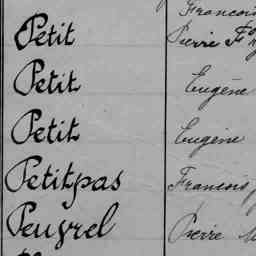 François
Petit Pierre Fçs
Petit Eugène
Petit Eugène
Petitpas François
Peuvrel Pierre